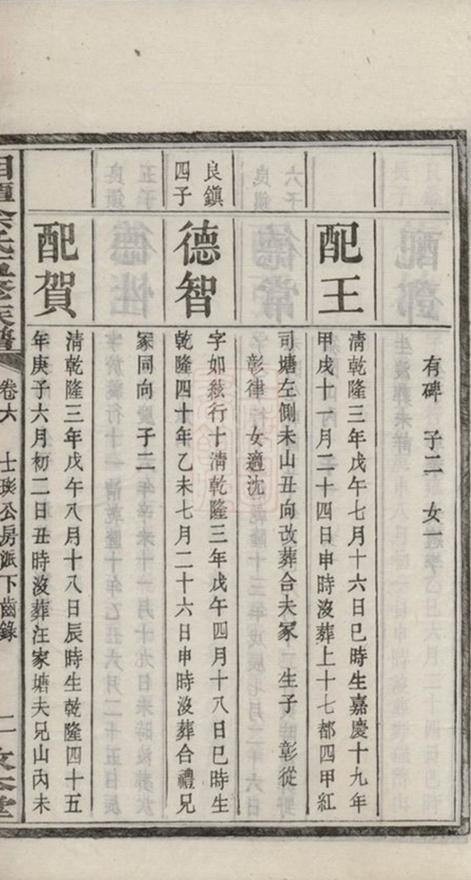 有碑　子二　女一
配王
清乾隆三年戊午七月十六日巳時生嘉慶十九年
甲戌十一月二十四日申時沒葬上十七都四甲紅
司塘左側未山丑向改葬合夫冢　生子　彰從
彰律　女適沈
良鎮
四子
德智
字如絃行十清乾隆三年戊午四月十八日巳時生
乾隆四十年乙未七月二十六日申時沒葬合禮兄
冢同向　子二
配賀
清乾隆三年戊午八月十八日辰時生乾隆四十五
年庚子六月初二日丑時沒葬汪家塘夫兄山丙未
五修族譜
卷六　士璵公房派下齒錄　二